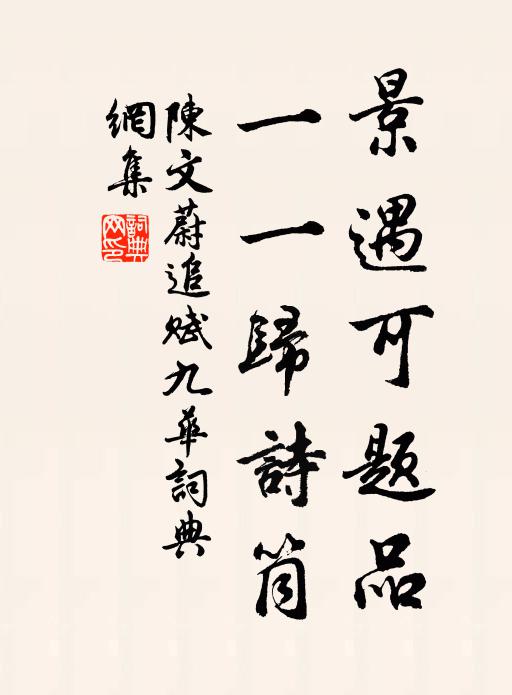 景遇可題品
一一歸詩筒
陳文蔚追賦九華詞典
網集
詞典
网印